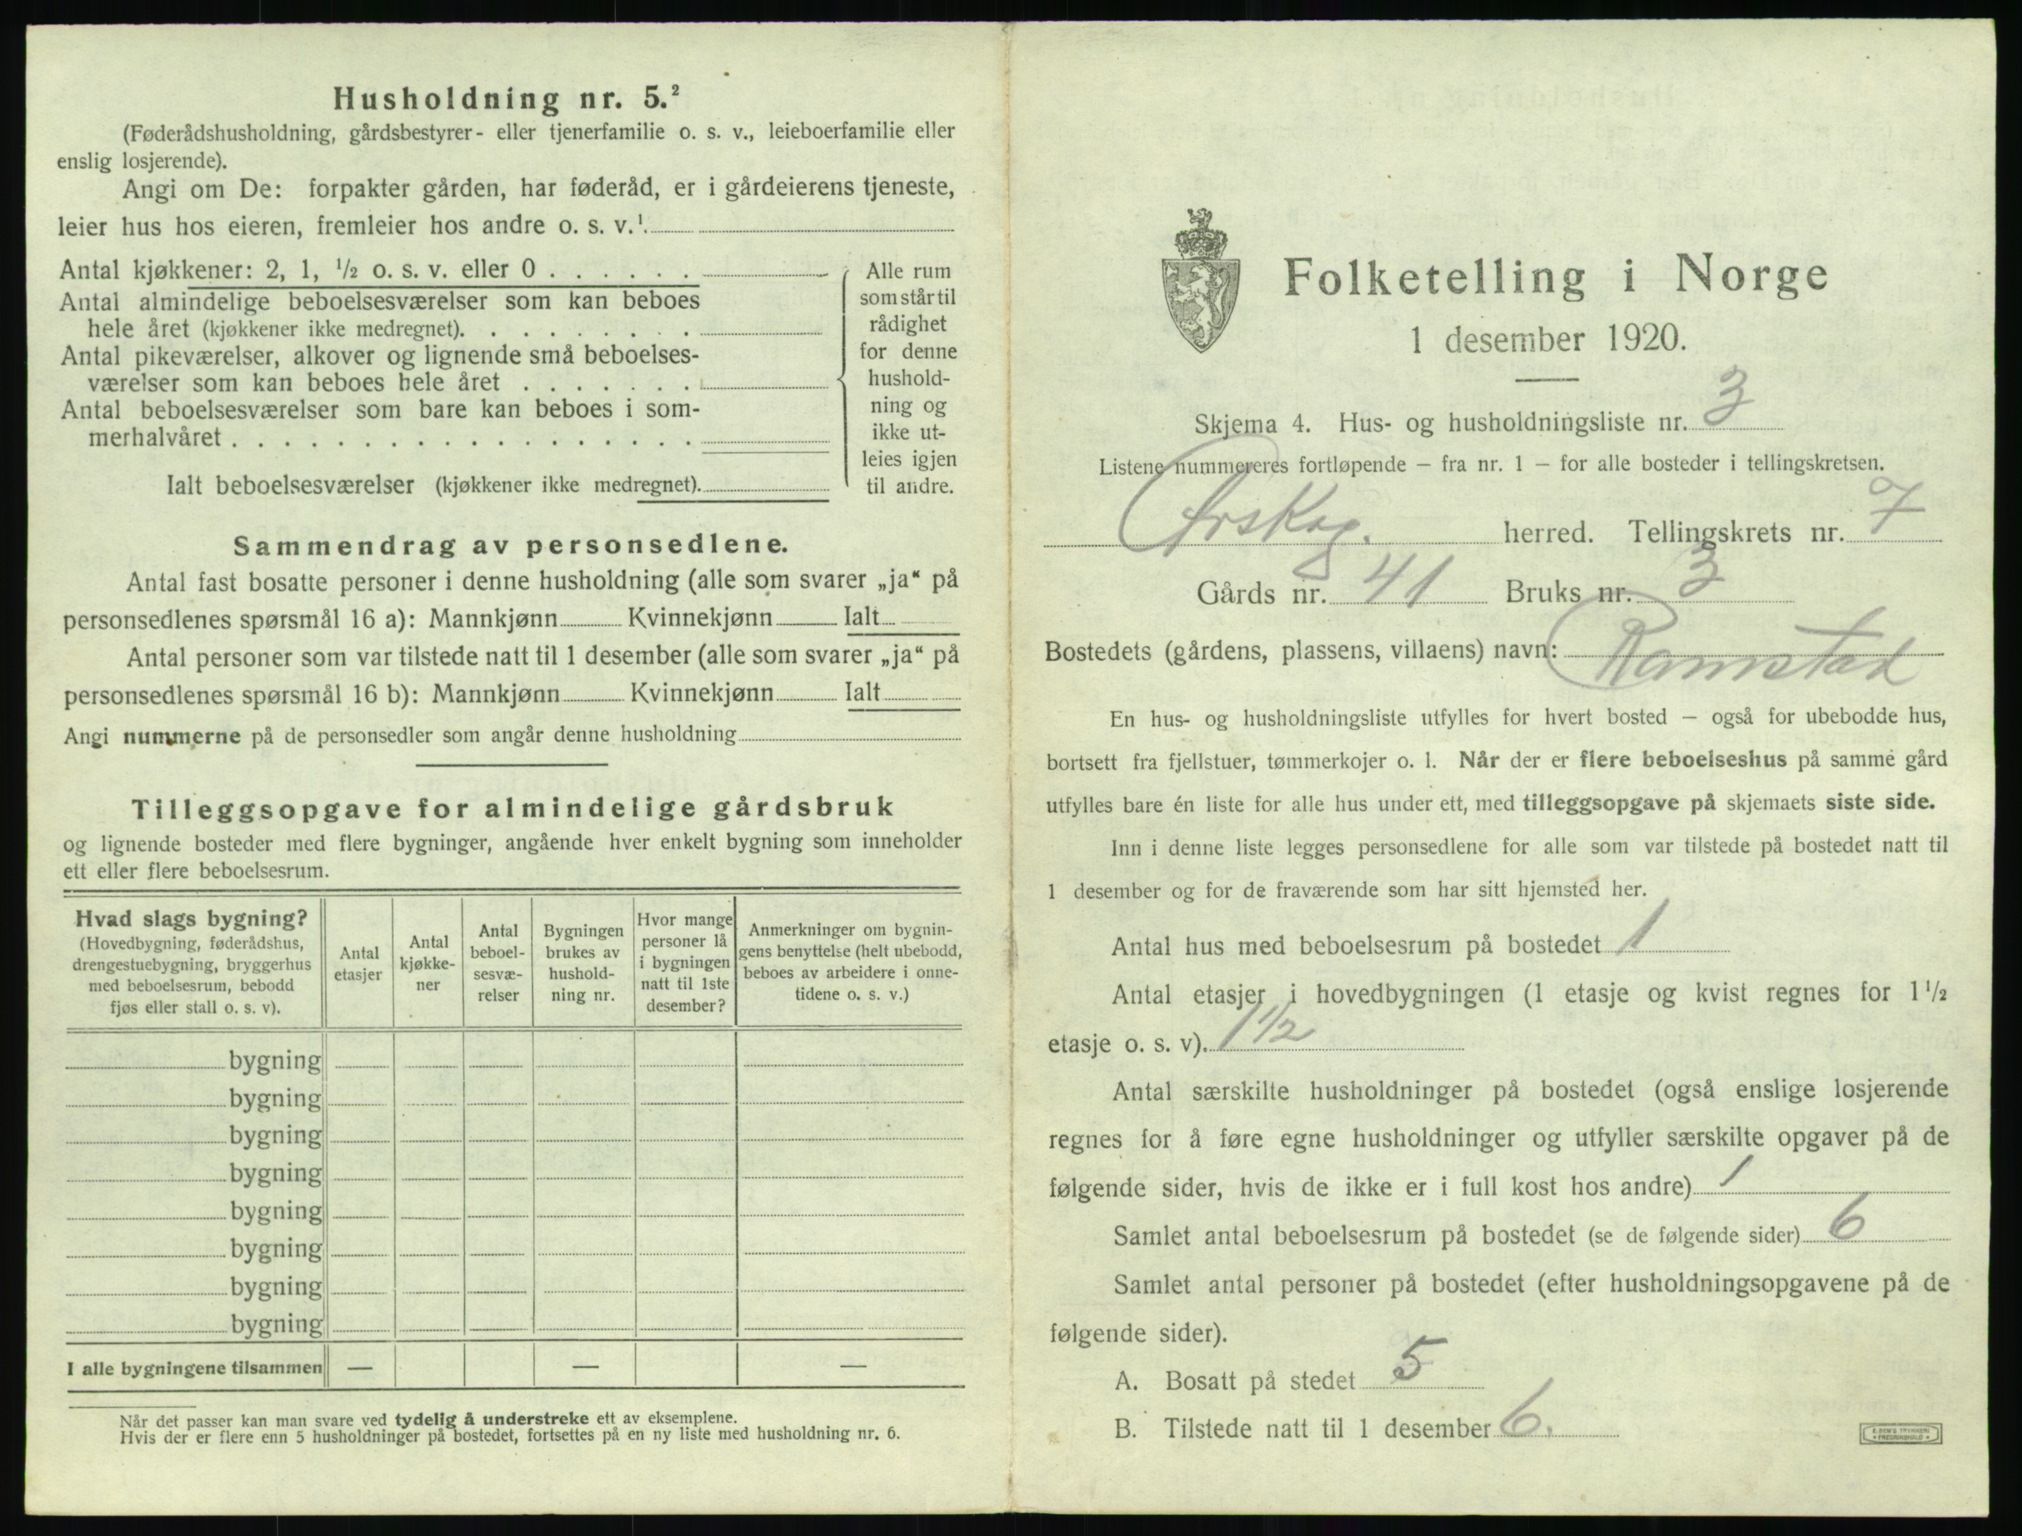 Husholdning nr. 5.²
(Føderådshusholdning, gårdsbestyrer- eller tjenerfamilie o. s. v., leieboerfamilie eller
enslig losjerende).
Angi om De: forpakter gården, har føderåd, er i gårdeierens tjeneste,
leier hus hos eieren, fremleier hos andre o. s. v.¹
Antal kjøkkener: 2, 1, ½ o. s. v. eller 0 . . . . . .
Antal almindelige beboelsesværelser som kan beboes
hele året (kjøkkener ikke medregnet). . . . . . . . .
Antal pikeværelser, alkover og lignende små beboelses-
værelser som kan beboes hele året . . . . . . .
Antal beboelsesværelser som bare kan beboes i som-
merhalvåret . . . . . . . . . . . . . . . . . .
Ialt beboelsesværelser (kjøkkener ikke medregnet).
Alle rum
som står til
rådighet
for denne
hushold-
ning og
ikke ut-
leies igjen
til andre.
Sammendrag av personsedlene.
Antal fast bosatte personer i denne husholdning (alle som svarer „ja“ på
personsedlenes spørsmål 16 a): Mannkjønn Kvinnekjønn Ialt
Antal personer som var tilstede natt til 1 desember (alle som svarer „ja“ på
personsedlenes spørsmål 16 b): Mannkjønn Kvinnekjønn Ialt
Angi nummerne på de personsedler som angår denne husholdning
Tilleggsopgave for almindelige gårdsbruk
og lignende bosteder med flere bygninger, angående hver enkelt bygning som inneholder
ett eller flere beboelsesrum.
Hvad slags bygning?
(Hovedbygning, føderådshus,
drengestuebygning, bryggerhus
med beboelsesrum, bebodd
fjøs eller stall o. s. v).
Antal
etasjer
Antal
kjøkke-
ner
Antal
beboel-
sesvæ-
relser
Bygningen
brukes av
hushold-
ning nr.
Hvor mange
personer lå
i bygningen
natt til 1ste
desember?
Anmerkninger om bygnin-
gens benyttelse (helt ubebodd,
beboes av arbeidere i onne-
tidene o. s. v.)
bygning
bygning
bygning
bygning
bygning
bygning
bygning
bygning
I alle bygningene tilsammen — — —
Når det passer kan man svare ved tydelig å understreke ett av eksemplene.
Hvis der er flere enn 5 husholdninger på bostedet, fortsettes på en ny liste med husholdning nr. 6.
Folketelling i Norge
1 desember 1920.
Skjema 4. Hus- og husholdningsliste nr. 3
Listene nummereres fortløpende – fra nr. 1 – for alle bosteder i tellingskretsen.
Ørskog. herred. Tellingskrets nr. 7
Gårds nr. 41 Bruks nr. 3
Bostedets (gårdens, plassens, villaens) navn: Ramstad
En hus- og husholdningsliste utfylles for hvert bosted – også for ubebodde hus,
bortsett fra fjellstuer, tømmerkojer o. l. Når der er flere beboelseshus på samme gård
utfylles bare én liste for alle hus under ett, med tilleggsopgave på skjemaets siste side.
Inn i denne liste legges personsedlene for alle som var tilstede på bostedet natt til
1 desember og for de fraværende som har sitt hjemsted her.
Antal hus med beboelsesrum på bostedet 1
Antal etasjer i hovedbygningen (1 etasje og kvist regnes for 1 ½
etasje o. s. v). 1 ½
Antal særskilte husholdninger på bostedet (også enslige losjerende
regnes for å føre egne husholdninger og utfyller særskilte opgaver på de
følgende sider, hvis de ikke er i full kost hos andre) 1
Samlet antal beboelsesrum på bostedet (se de følgende sider) 6
Samlet antal personer på bostedet (efter husholdningsopgavene på de
følgende sider).
A. Bosatt på stedet 5
B. Tilstede natt til 1 desember 6.